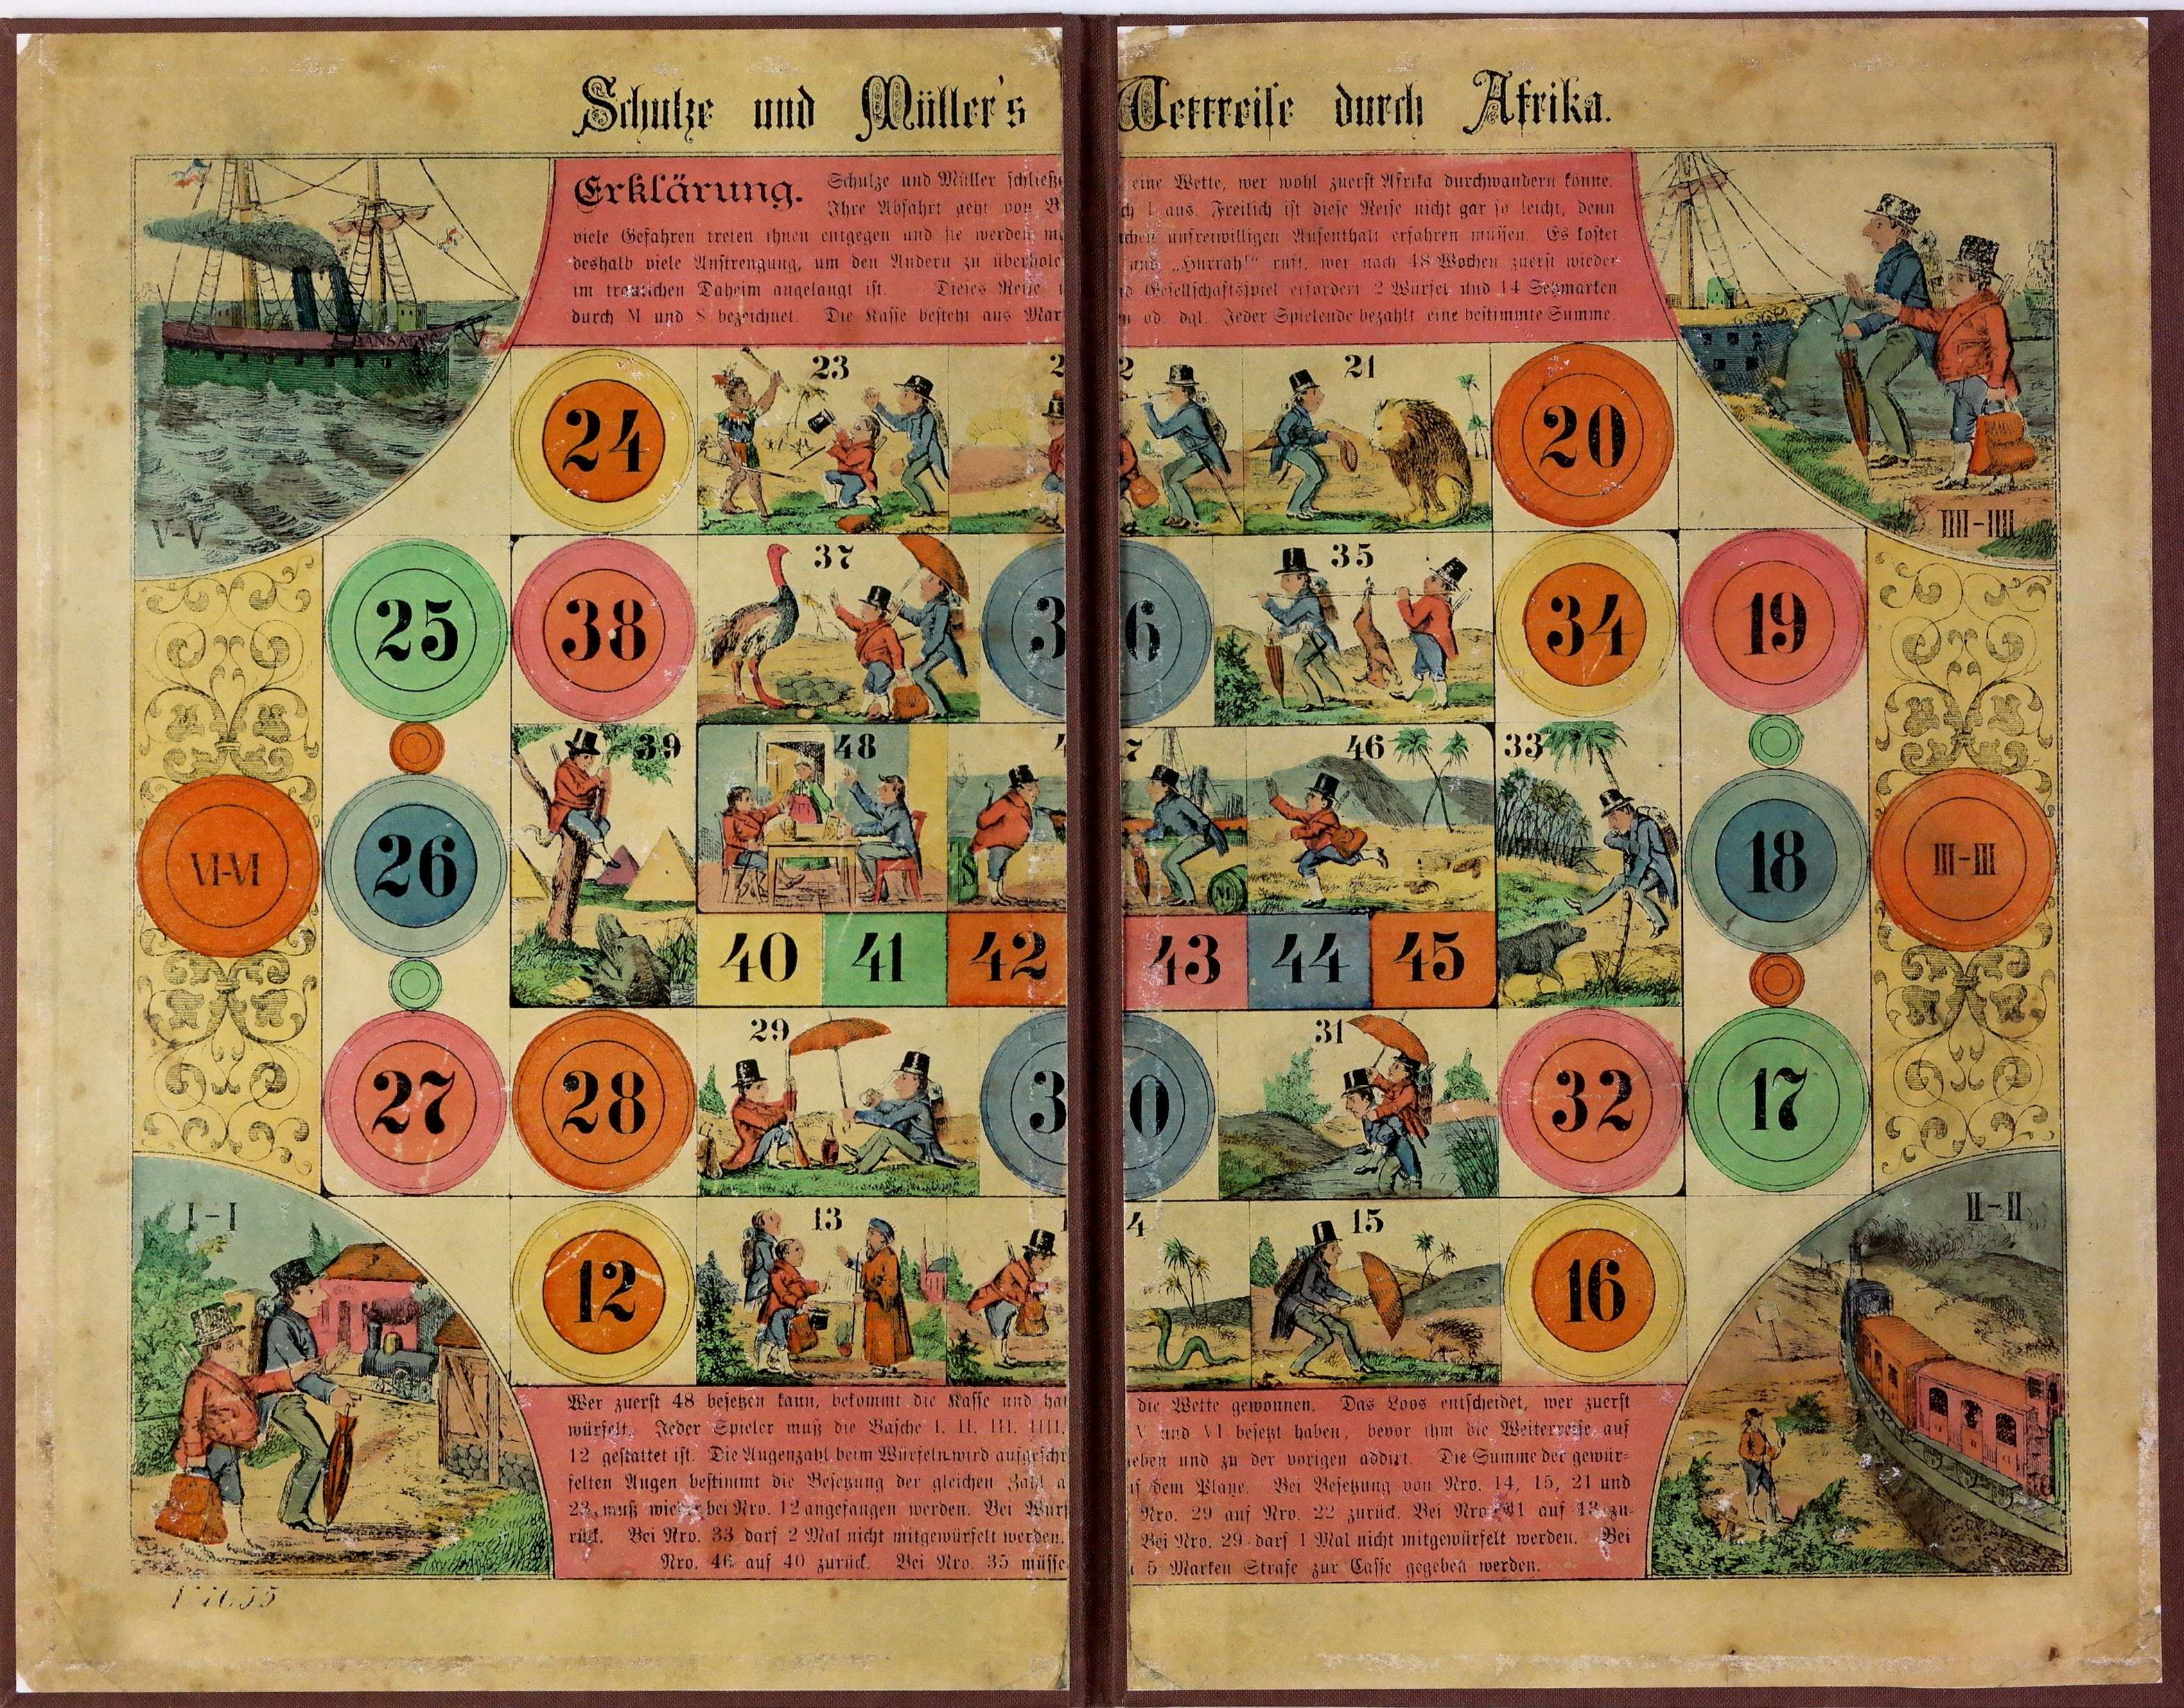 Schulze und Müller's Wettreise durch Afrika.
Erklärung. Schulze und Müller schließe eine Wette, wer wohl zuerst Afrika durchwandern könne.
Ihre Abfahrt geht von B ch 1 aus. Freilich ist diese Reise nicht gar so leicht, denn
viele Gefahren treten ihnen entgegen und sie werden m chen unfreiwilligen Aufenthalt erfahren müssen. Es kostet
deshalb viele Anstrengung, um den Andern zu überhole und „Hurrah!" ruft, wer nach 48 Wochen zuerst wieder
im traulichen Daheim angelangt ist. Dieses Reise d Gesellschaftsspiel erfordert 2 Würfel und 14 Setzmarken
durch M und S bezeichnet. Die Kasse besteht aus Mar n od. dgl. Jeder Spielende bezahlt eine bestimmte Summe.
HANSA
V-V
24
23
22
21
20
IIII-IIII
25
38
37
36
35
34
19
39
48
47
46
33
VI-VI
26
18
III-III
S
M
40
41
42
43
44
45
27
28
29
30
31
32
17
I-I
12
13
14
15
16
II-II
Wer zuerst 48 besetzen kann, bekommt die Kasse und hat die Wette gewonnen. Das Loos entscheidet, wer zuerst
würfelt. Jeder Spieler muß die Basche I. II. III. IIII. V und VI besetzt haben, bevor ihm die Weiterreise auf
12 gestattet ist. Die Augenzahl beim Würfeln wird aufgeschr ieben und zu der vorigen addirt. Die Summe der gewür-
felten Augen bestimmt die Besetzung der gleichen Zahl a uf dem Plane. Bei Besetzung von Nro. 14, 15, 21 und
23 muß wieder bei Nro. 12 angefangen werden. Bei Wurf Nro. 29 auf Nro. 22 zurück. Bei Nro. 41 auf 13 zu-
rück. Bei Nro. 33 darf 2 Mal nicht mitgewürfelt werden. Bei Nro. 29 darf 1 Mal nicht mitgewürfelt werden. Bei
Nro. 46 auf 40 zurück. Bei Nro. 35 müsse 5 Marken Strafe zur Casse gegeben werden.